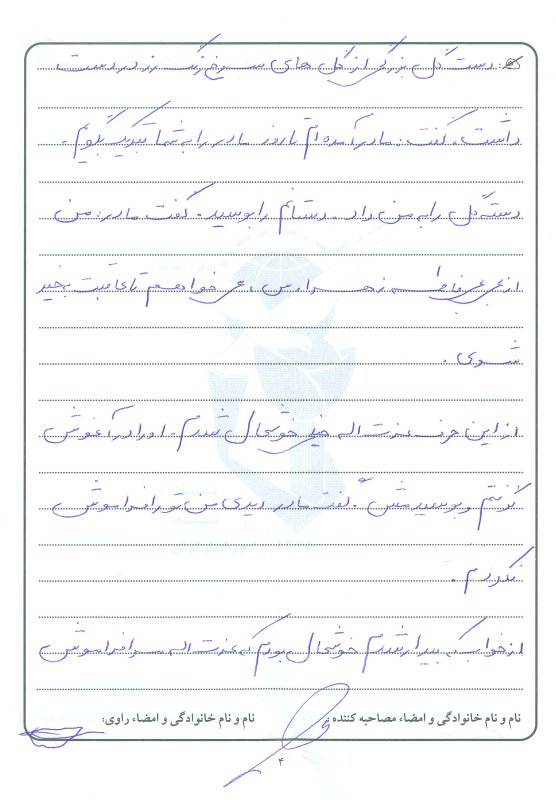 دست گل بزرگی از گل های سرخ رنگ نیز در دست
داشت. گفت: مادر آمده ام تا روز مادر را به شما تبریک بگویم.
دسته گل را به من داد. دستانم را بوسید. گفت مادر: من
از بی بی فاطمه زهرا (س) می خواهم تا عاقبت بخیر
شوی.
از این حرف عزت اله خیلی خوشحال شدم. او را در آغوش
گرفتم و بوسیدمش. گفت مادر دیدی من تو را فراموش
نکردم.
از خواب که بیدار شدم خوشحال بودم که عزت اله مرا فراموش
نام و نام خانوادگی و امضاء مصاحبه کننده: نام و نام خانوادگی و امضاء راوی:
۴